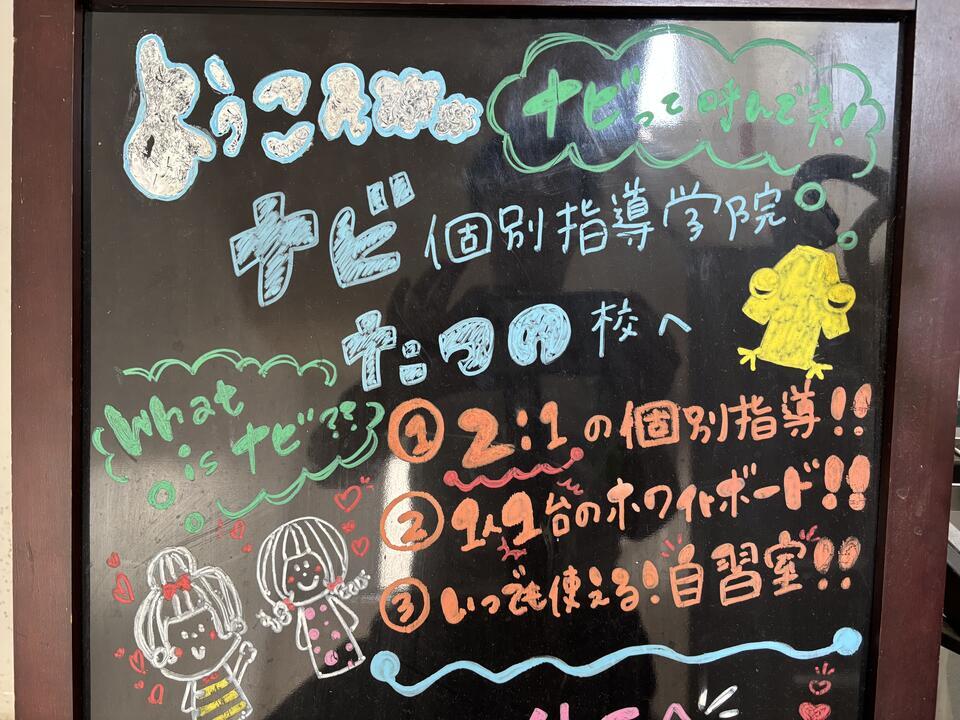 ようこそ
ナビって呼んでネ!
ナビ個別指導学院
たつの校へ
What
is ナビ??
① 2:1の個別指導!!
② 1人1台のホワイトボード!!
③ いつでも使える!自習室!!